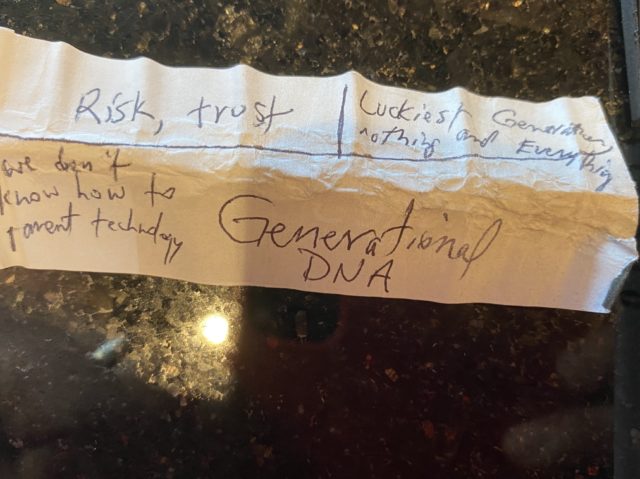 Risk, trust
Luckiest Generation
nothing and Everything
we don't
know how to
parent technology
Generational
DNA